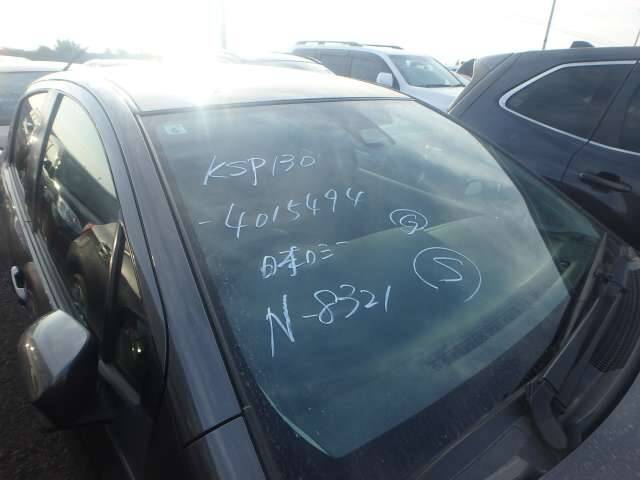 KSP130
-4015494 Ⓢ
日本ロミー
N-8321 Ⓢ